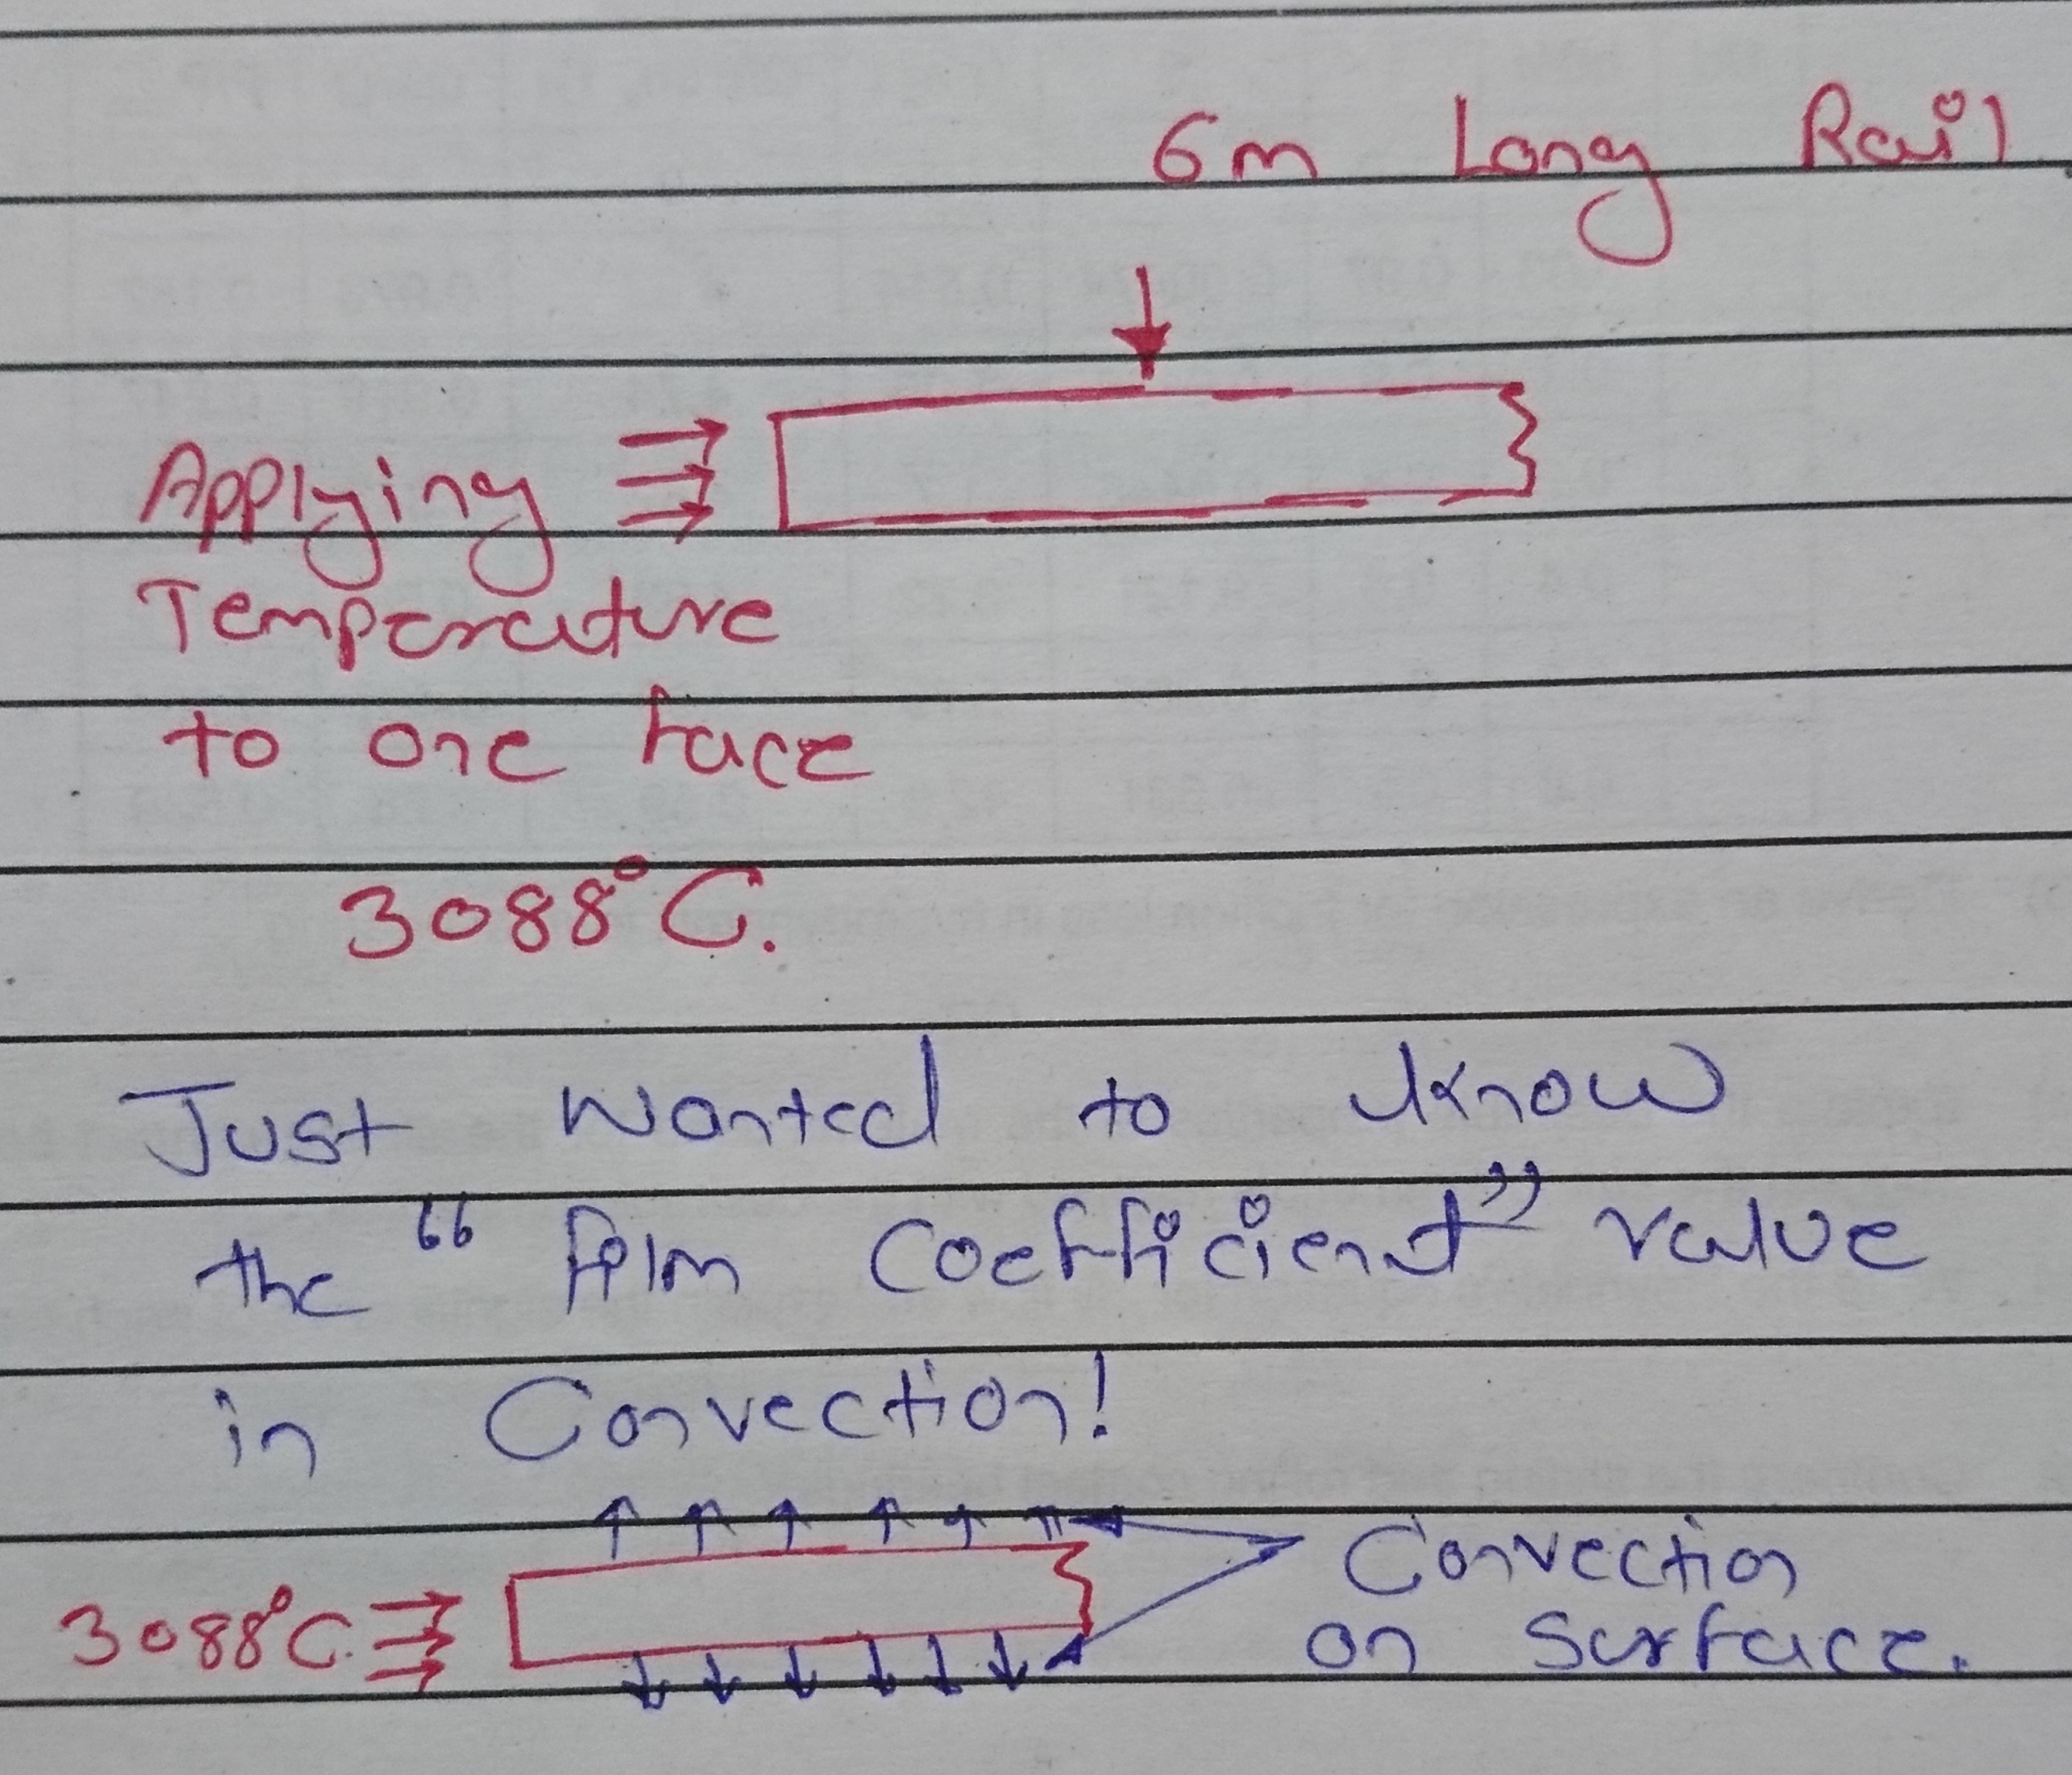 6m Long Rail
Applying
Temperature
to one face
3088°C.
Just wanted to know
the "film coefficient" value
in Convection!
3088°C.
Convection
on Surface.